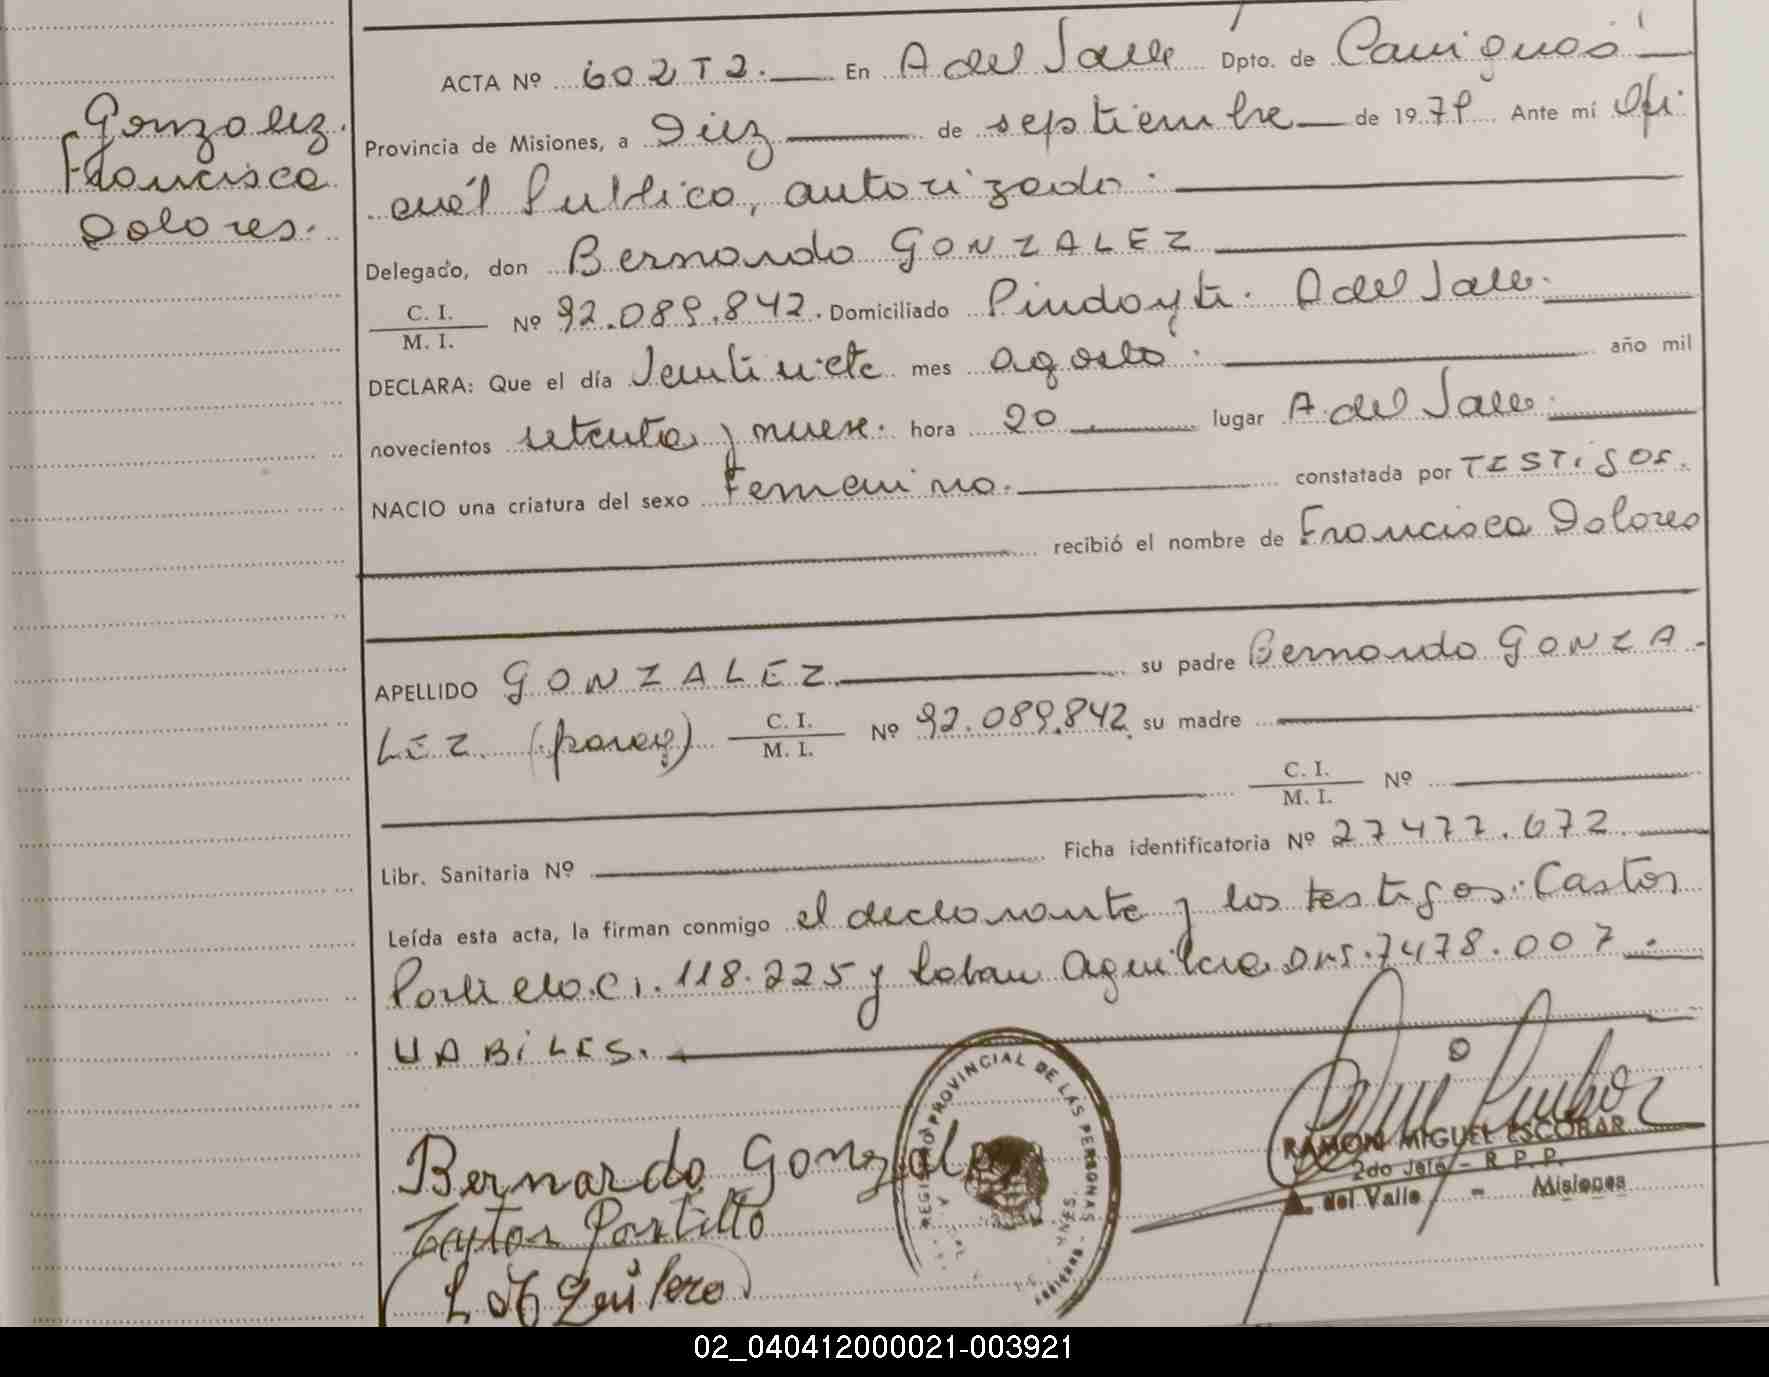 Gonzalez
Francisca
Dolores.
ACTA Nº 602 T2. En A del Valle Dpto. de Cainguas
Provincia de Misiones, a Diez de septiembre de 1979. Ante mí Ofi
cial Publico, autorizado.
Delegado, don Bernardo GONZALEZ
C. I.
M. I. Nº 92.089.842. Domiciliado Pindoyti. A del Valle.
DECLARA: Que el día Veintisiete mes agosto. año mil
novecientos setenta y nueve. hora 20 lugar A. del Valle.
NACIO una criatura del sexo Femenino. constatada por TESTIGOS.
recibió el nombre de Francisca Dolores
APELLIDO GONZALEZ su padre Bernardo GONZA
LEZ (parag) C. I.
M. I. Nº 92.089.842 su madre
C. I.
M. I. Nº
Libr. Sanitaria Nº Ficha identificatoria Nº 27477.672
Leída esta acta, la firman conmigo el declarante y los testigos: Castor
Portillo. CI. 118.225 y Aguilera 7478.007.
HABILES.
Bernardo Gonzalez
Castor Portillo
REGISTRO PROVINCIAL DE LAS PERSONAS
RAMON MIGUEL ESCOBAR
2do Jefe - R. P. P.
A. del Valle - Misiones
02_040412000021-003921